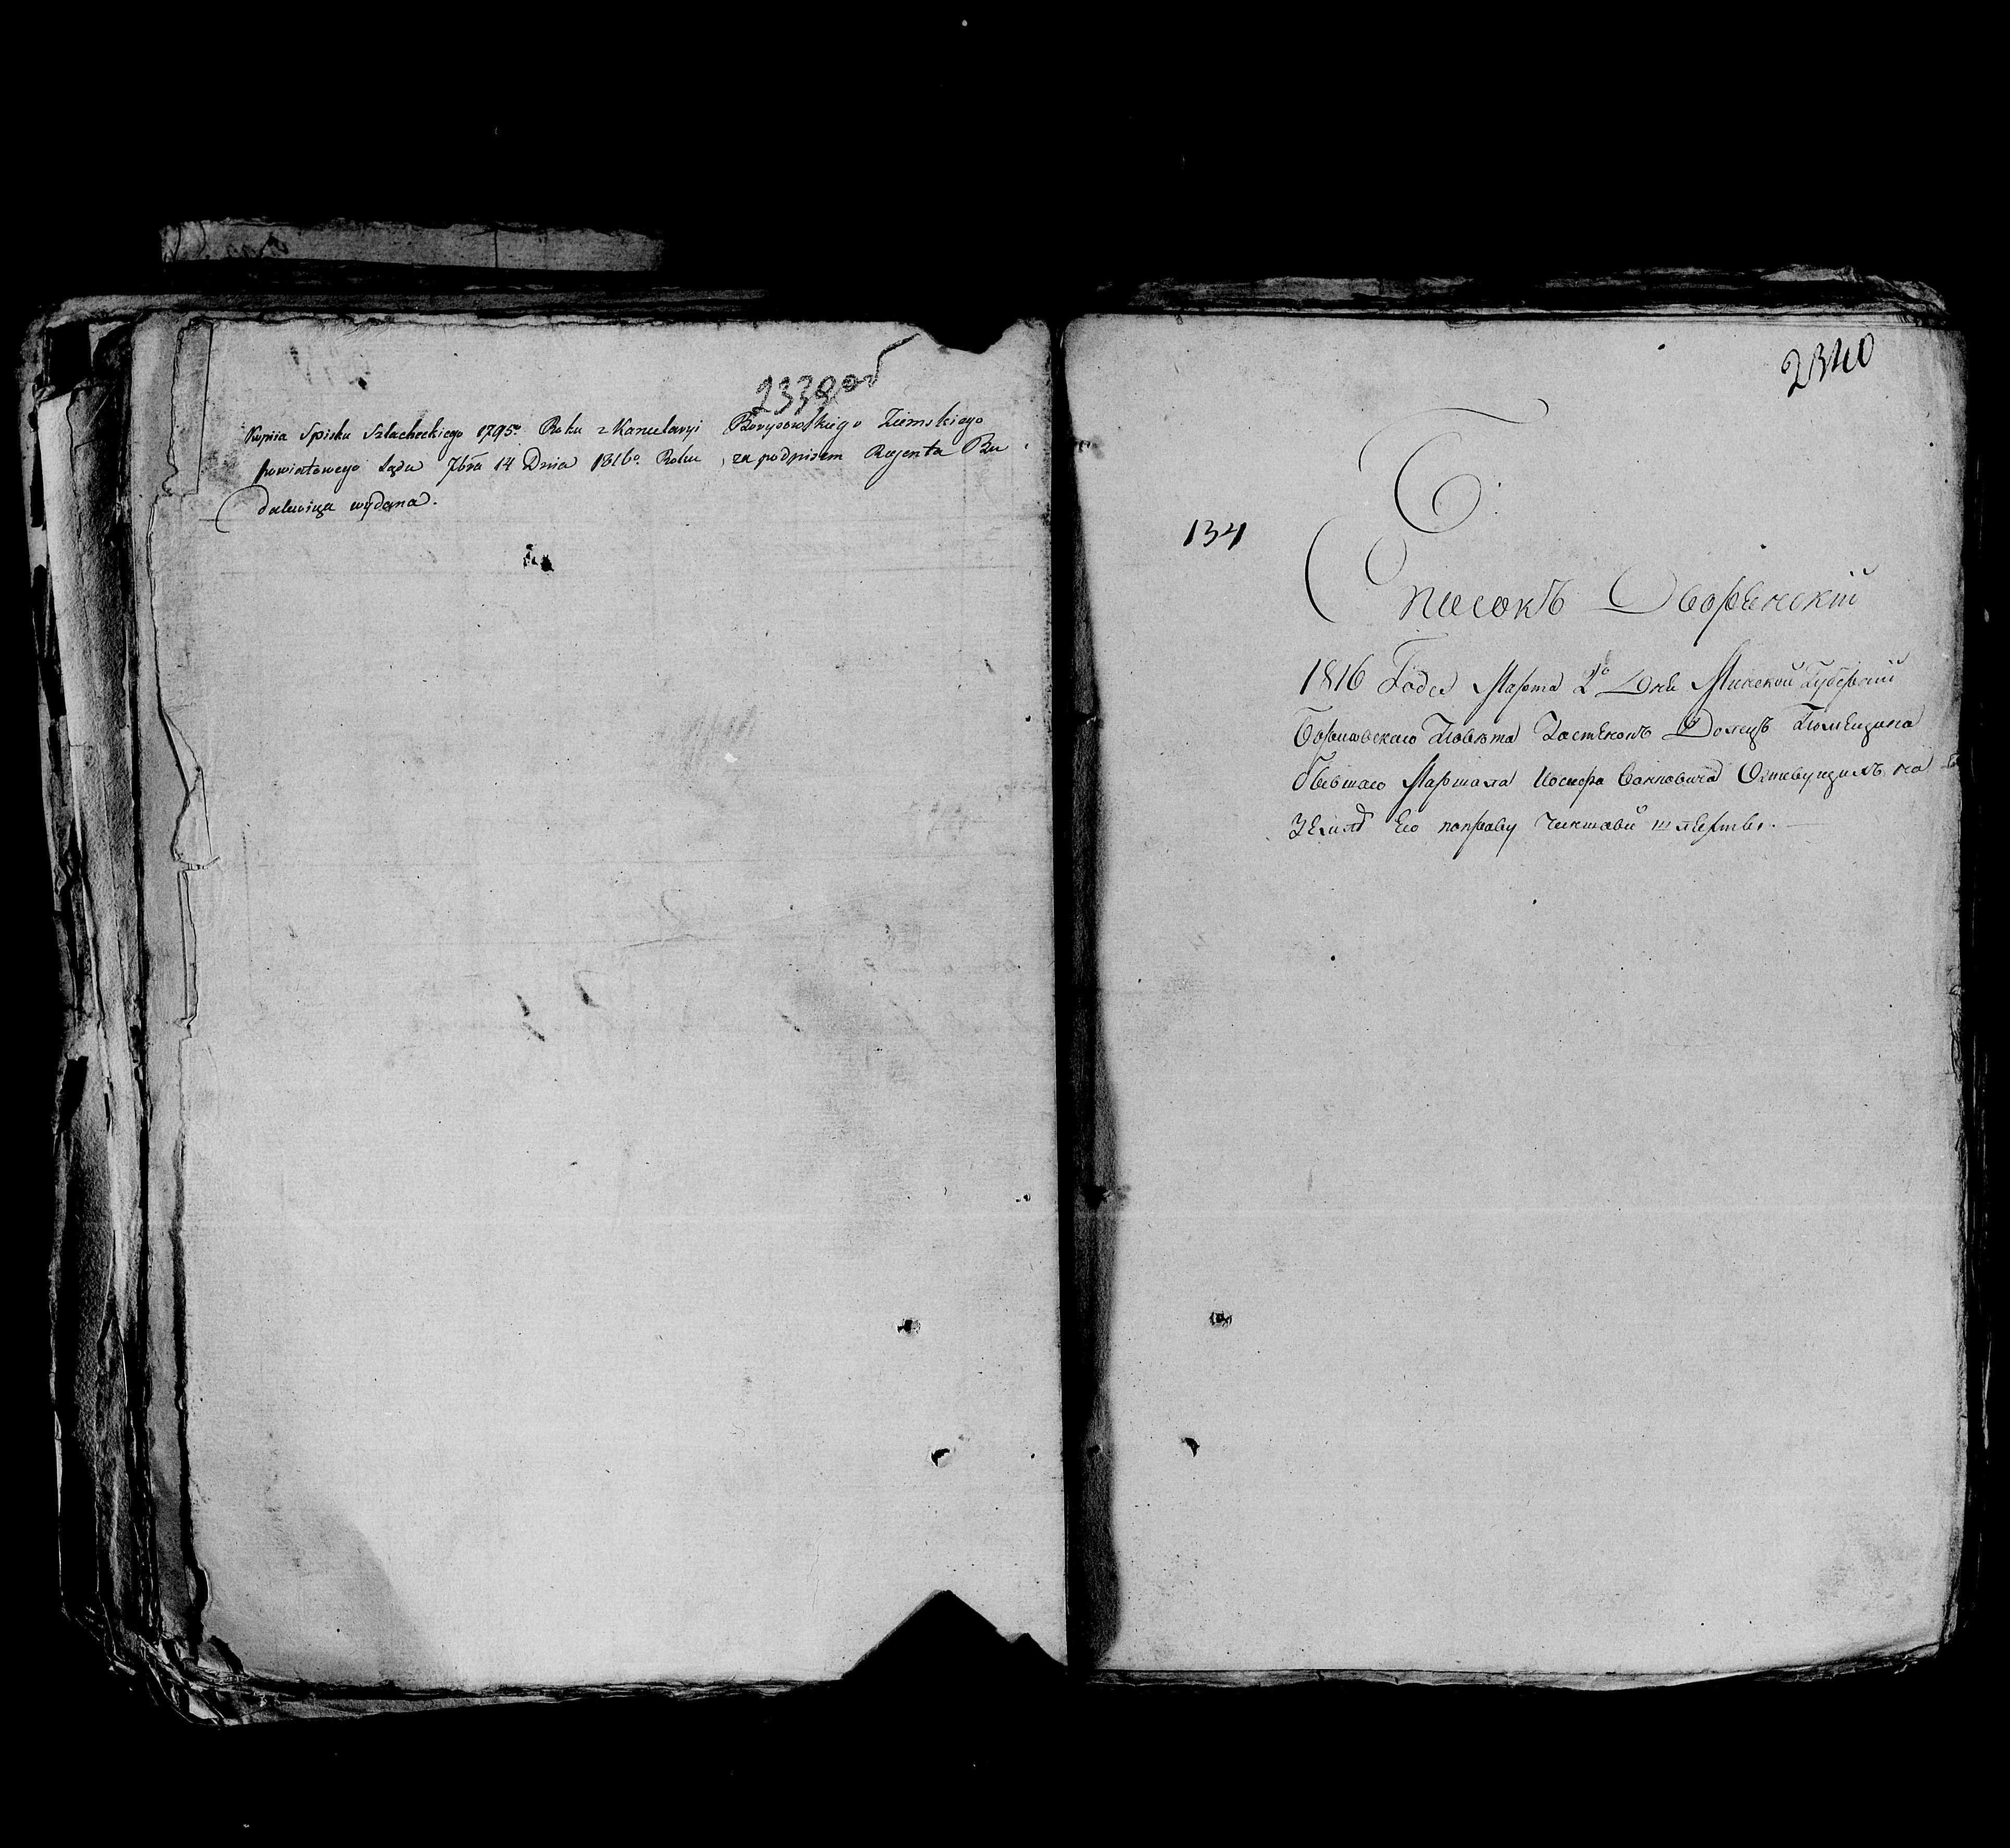 2339об
Kopiia Spisku Szlacheckiego 1795o Roku z Kancelaryi Borysowskiego Ziemskiego
powiatowego Sądu 7bra 14 Dnia 1816o Roku, za podpisem Rejenta Bu
dalewicza wydana.
2340
134
Списокъ Дворенский
1816 Года Марта 2го Дня Минской Губерний
Борисовского Повета Застенокъ
бывшаго Маршала Иосифа на
Земле Его по праву